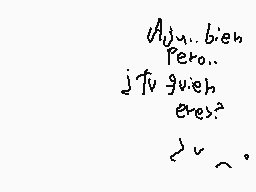 Ajn.. bien
Pero..
¿Tv qvien
eres?